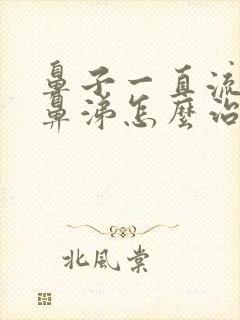 鼻子一直流
鼻涕怎麼治
北風棠